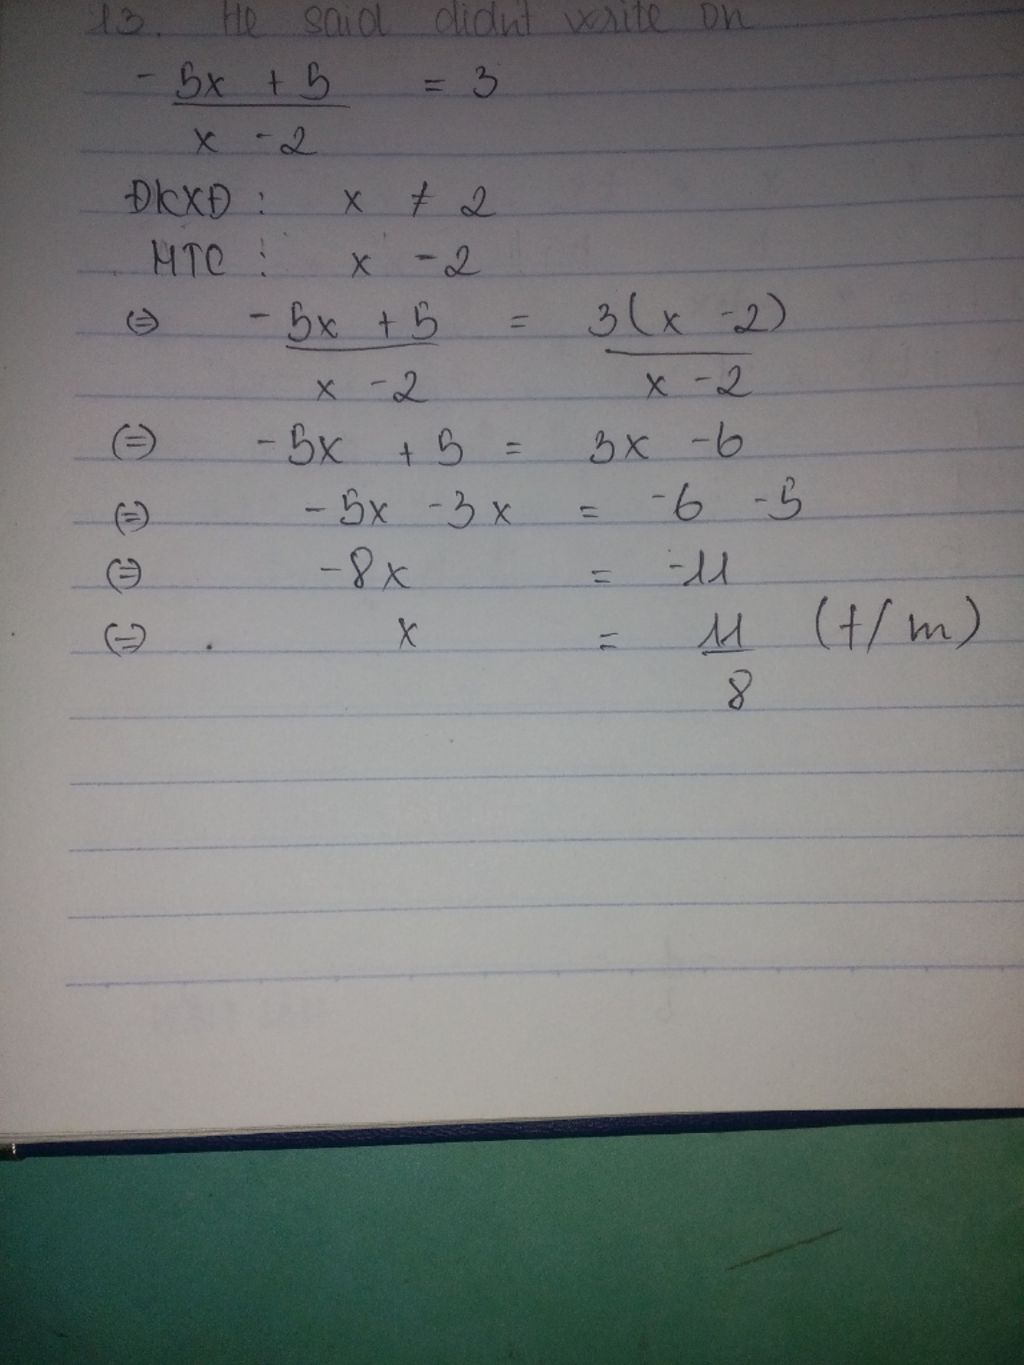 13. He said didn't write on
- 5x + 5 = 3
x - 2
ĐKXĐ : x ≠ 2
MTC : x - 2
(=) - 5x + 5 = 3(x - 2)
x - 2 x - 2
(=) - 5x + 5 = 3x - 6
(=) - 5x - 3x = -6 - 5
(=) - 8x = -11
(=) x = 11 (t/m)
8